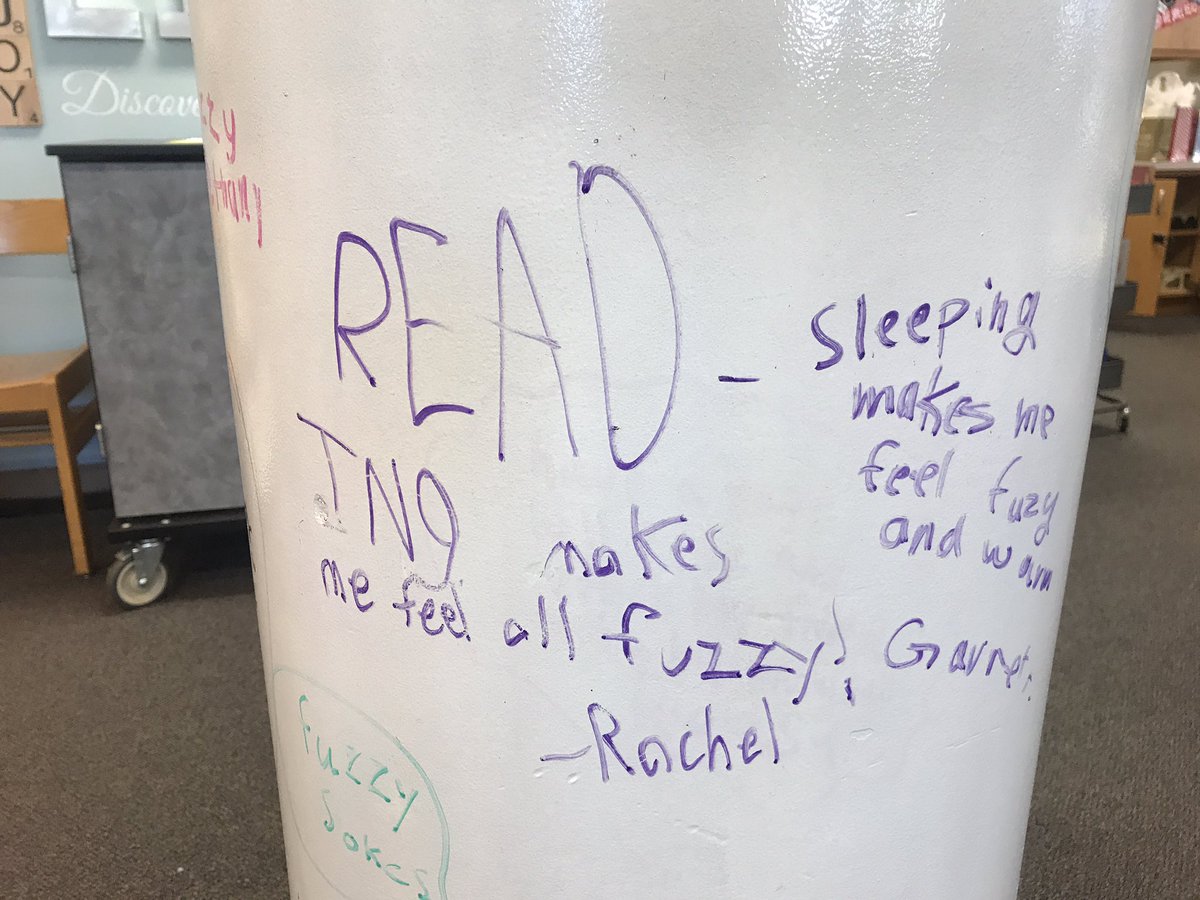 Discove
zy
thany
READ-
ING makes
me feel all fuzzy!
-Rachel
sleeping
makes me
feel fuzy
and warm
Garnet
Fuzzy
Jokes